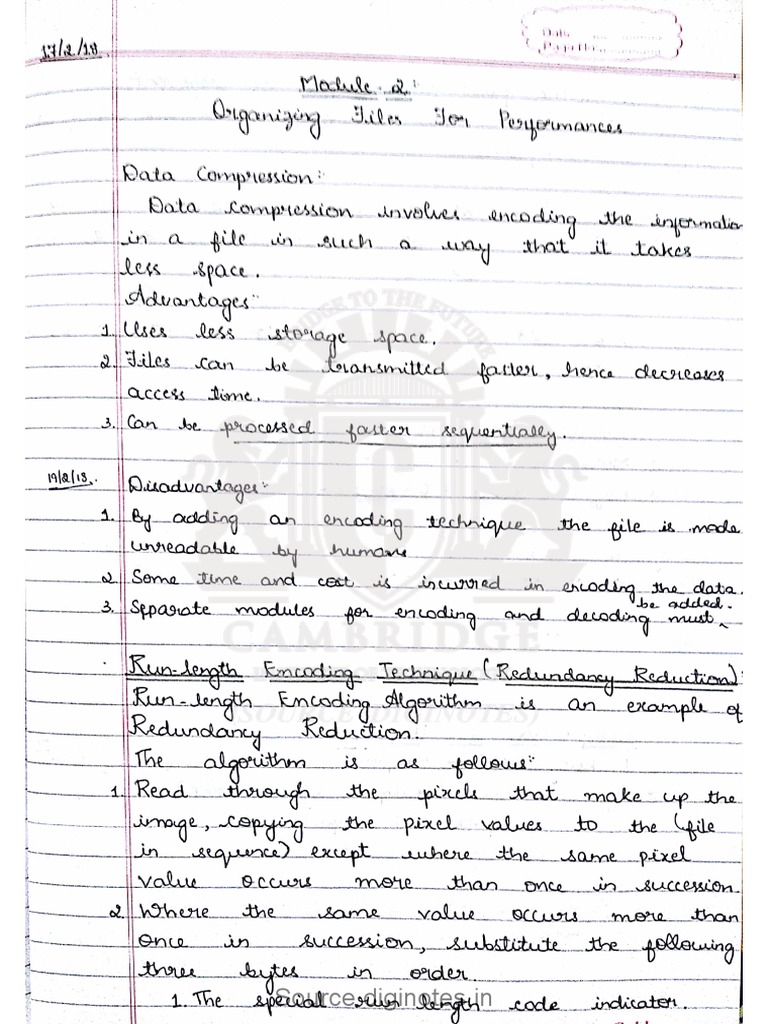 17/2/18
Date
Page No
Module - 2:
Organizing Files For Performances
Data Compression:
Data compression involves encoding the information
in a file in such a way that it takes
less space.
Advantages:
1. Uses less storage space.
2. Files can be transmitted faster, hence decreases
access time.
3. Can be processed faster sequentially.
19/2/18.
Disadvantages:
1. By adding an encoding technique the file is made
unreadable by humans
2. Some time and cost is incurred in encoding the data.
3. Separate modules for encoding and decoding must be added.
Run-length Encoding Technique (Redundancy Reduction):
Run-length Encoding Algorithm is an example of
Redundancy Reduction.
The algorithm is as follows:
1. Read through the pixels that make up the
image, copying the pixel values to the (file
in sequence) except where the same pixel
value occurs more than once in succession.
2. Where the same value occurs more than
once in succession, substitute the following
three bytes in order.
1. The special run length code indicator.
BRIDGE TO THE FUTURE
CAMBRIDGE
(SOURCE DIGINOTES)
Source diginotes.in